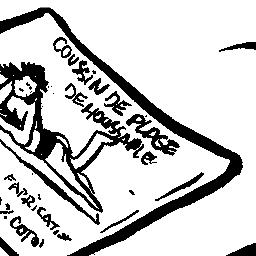 COUSSIN DE PLAGE
DEHOUSSABLE
FABRICATI
% COTO